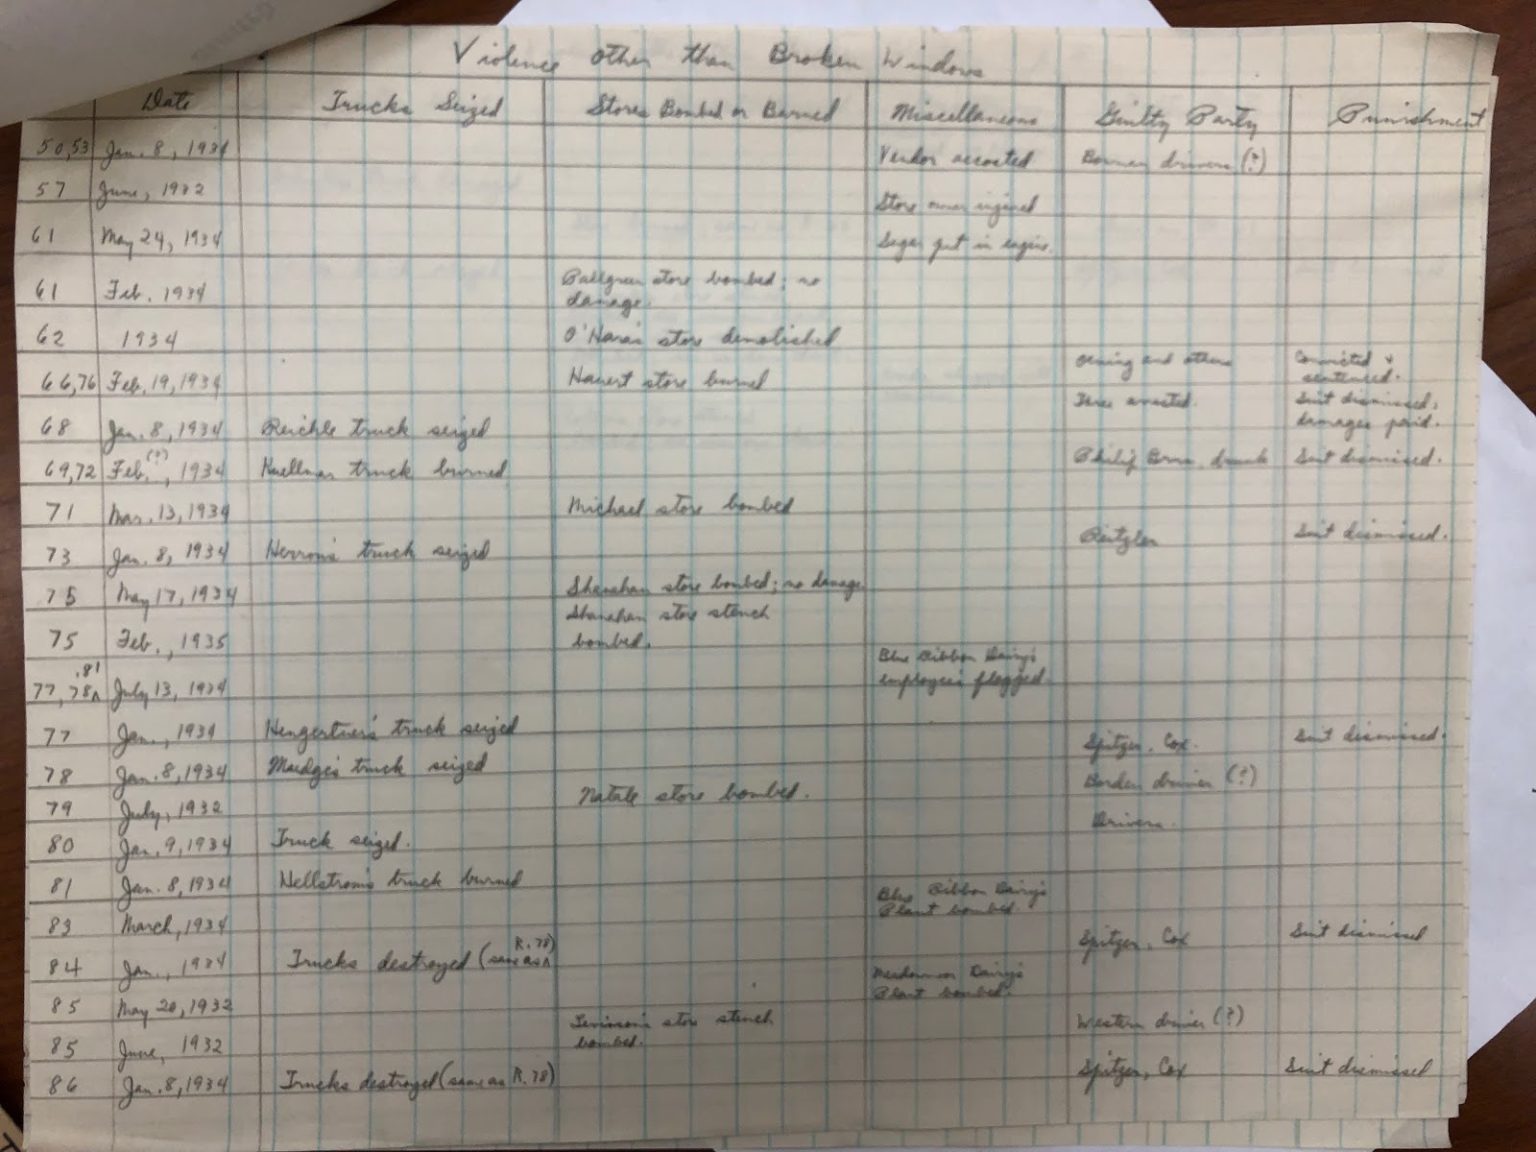 Violence Other than Broken Windows
Date Trucks Seized Stores Bombed or Burned Miscellaneous Guilty Party Punishment
50,53 Jan. 8, 1934 Vendor accosted Bowman drivers (?)
57 June, 1932 Store owner injured
61 May 24, 1934 Sugar put in engine.
61 Feb. 1934 store bombed; no
damage.
62 1934 O'Hara's store demolished
66,76 Feb. 19, 1934 store burned and others Convicted &
sentenced.
68 Jan. 8, 1934 Reichle truck seized Three arrested. Suit dismissed,
damages paid.
69,72 Feb.(?), 1934 truck burned Philip Suit dismissed.
71 Mar. 13, 1934 Michael store bombed
73 Jan. 8, 1934 Herron's truck seized Suit dismissed.
75 May 17, 1934 Shanahan store bombed; no damage
75 Feb., 1935 Shanahan store stench
bombed.
77, 78, 81 July 13, 1934 Blue Ribbon Dairy's
employees flogged.
77 Jan., 1934 truck seized Spitzer, Cox. Suit dismissed.
78 Jan. 8, 1934 Mudge's truck seized Borden driver (?)
79 July, 1932 Natale store bombed.
80 Jan. 9, 1934 Truck seized. Drivers.
81 Jan. 8, 1934 Hellstrom's truck burned
83 March, 1934 Blue Ribbon Dairy's
Plant bombed.
84 Jan., 1934 Trucks destroyed (same as R. 78) Spitzer, Cox Suit dismissed
85 May 20, 1932 Dairy's
Plant bombed.
85 June, 1932 Levinson's store stench
bombed. Western driver (?)
86 Jan. 8, 1934 Trucks destroyed (same as R. 78) Spitzer, Cox Suit dismissed